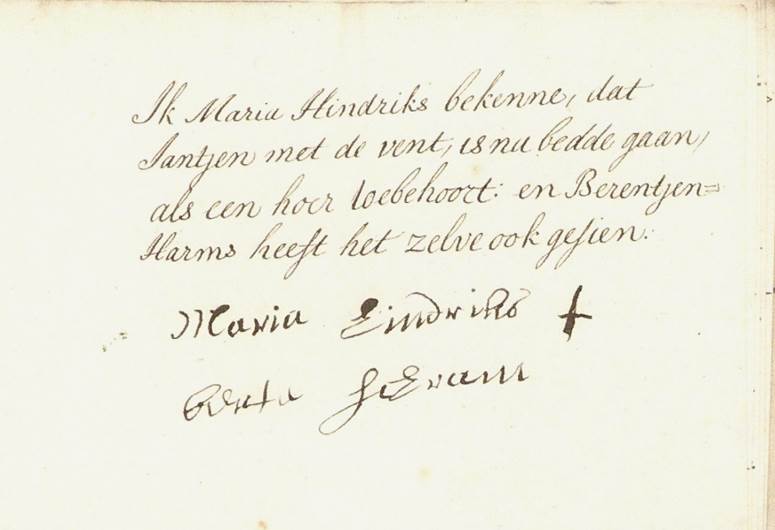 Ik Maria Hindriks bekenne, dat
Jantjen met de vent, is nu bedde gaan,
als een hoer toebehoort: en Berentjen=
Harms heeft het zelve ook gesien.
Maria Hindriks +